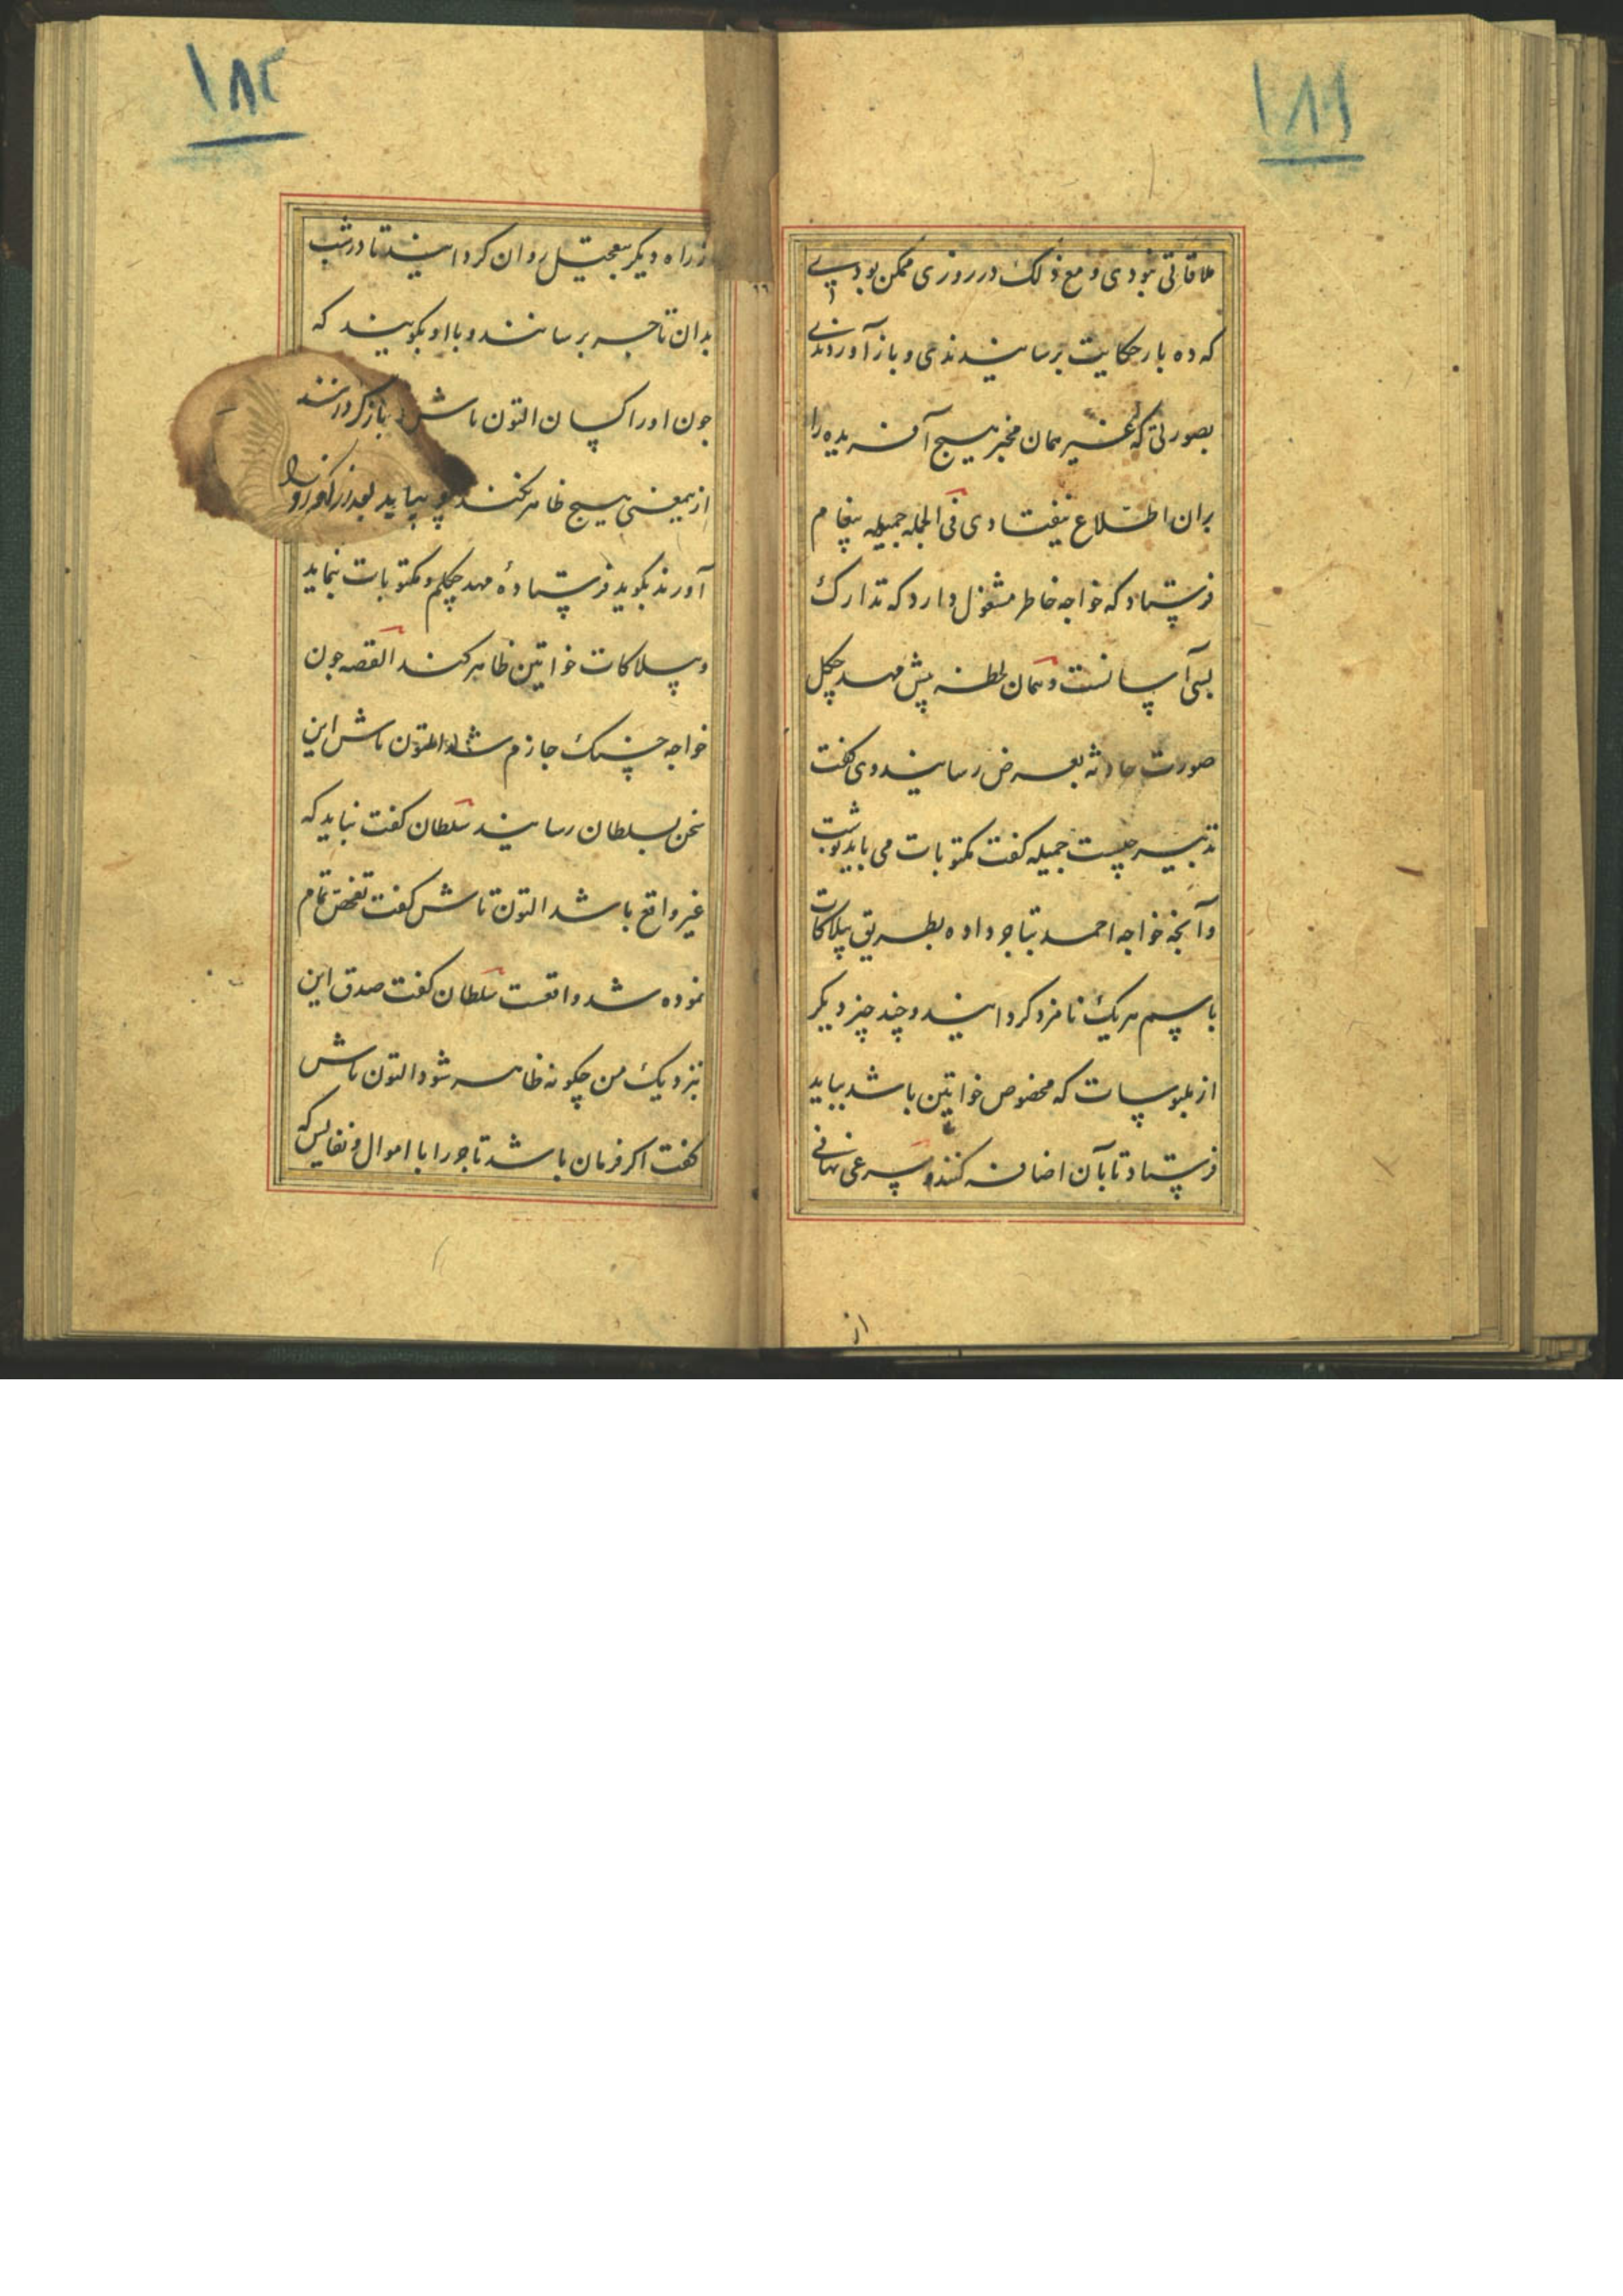 ۱۸۱
ملاقاتی نبودی و مع ذلک در روزی ممکن بودی
که ده بار حکایت برسانیدندی و باز آوردندی
بصورتی که غیر همان مخبر هیچ آفریده را
بران اطلاع نیفتادی فی الجمله جمیله پیغام
فرستاد که خواجه خاطر مشغول دارد که تدارک
بسی آسانست و همان لحظه پیش مهد چکل
صورت حادثه بعرض رسانید وی گفت
تدبیر چیست جمیله گفت مکتوبات می باید نوشت
و آنچه خواجه احمد بتاجر داده بطریق بیلاکات
باسم هر یک نامزد گردانید و چند چیز دیگر
از ملبوسات که مخصوص خواتین باشد بباید
فرستاد تا بآن اضافه کنند و مسرعی نهانی
از
۱۸۲
از راه دیگر بتعجیل روان گردانید تا در شب
بدان تاجر برسانند و با او بگویند که
چون او را کسان التون تاش باز گردانند
ازیمعنی هیچ ظاهر نکند و بیاید بعد از آنکه او را
آورند بگوید فرستادهٔ مهد چکلم و مکتوبات بنماید
و بیلاکات خواتین ظاهر کند القصه چون
خواجه حسنک جازم شد التون تاش این
سخن بسلطان رسانید سلطان گفت نباید که
غیر واقع باشد التون تاش گفت تفحص تمام
نموده شد واقعست سلطان گفت صدق این
نزدیک من چگونه ظاهر شود التون تاش
گفت اگر فرمان باشد تاجر را با اموال و نفایس که